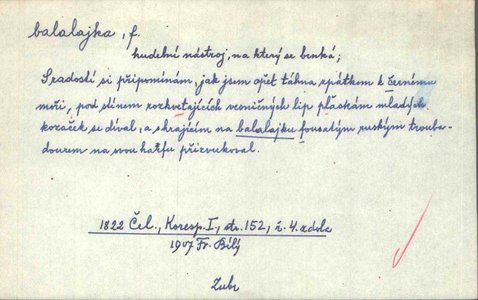 balalajka, f.
hudební nástroj, na který se brnká;
S radostí si připomínám, jak jsem opět táhna zpátkem k černému
moři, pod stínem rozkvetajících vesničných lip pláskám mladých
kozáček se díval, a shrajícím na balalajku fousatým ruským troube-
dourem na svou harfu přizvukoval.
1822 Čel., Koresp. I, str. 152, ř. 4. zdola
1907 Fr. Bílý
Zubr